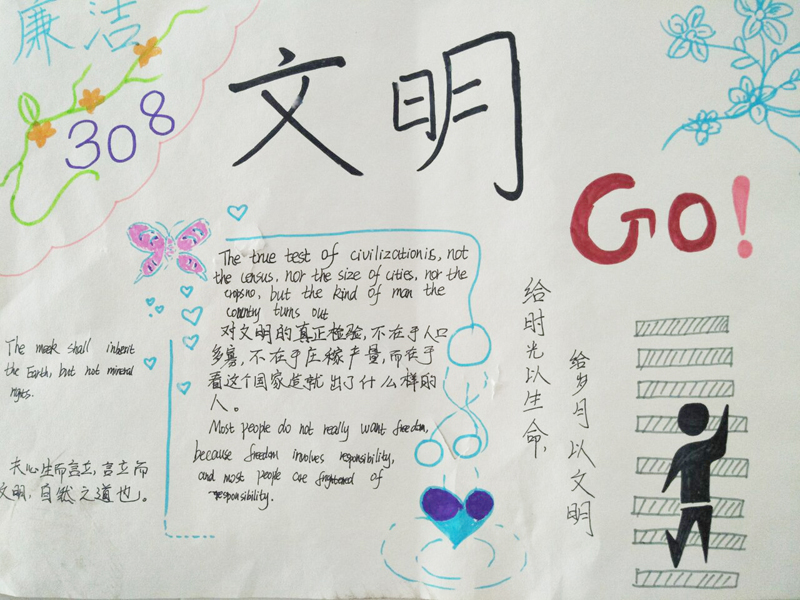 廉洁
308
文明
Go!
The true test of civilization is, not
the census, nor the size of cities, nor the
cropsno, but the kind of man the
country turns out
对文明的真正检验,不在于人口
多寡,不在于庄稼产量,而在于
看这个国家造就出了什么样的
人。
Most people do not really want freedom,
because freedom involves responsibility,
and most people are frightened of
responsibility.
The meek shall inherit
the Earth, but not mineral
rights.
夫心生而言立,言立而
文明,自然之道也。
给时光以生命,
给岁月以文明